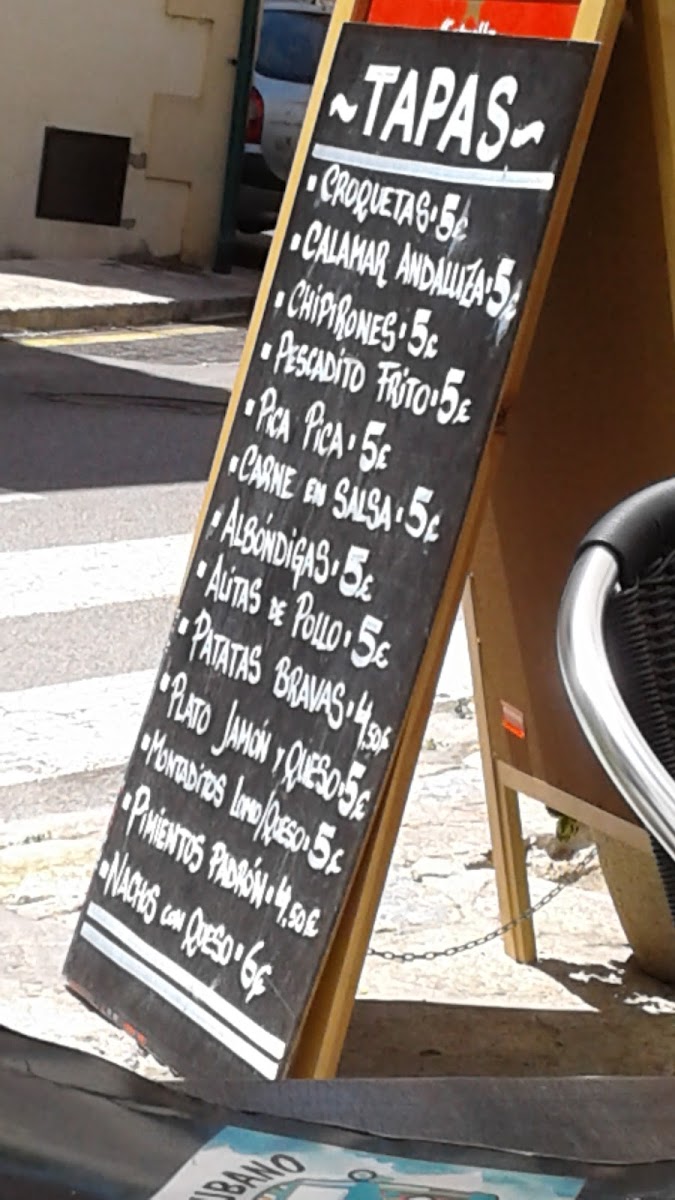 ~TAPAS~
▪ CROQUETAS: 5€
▪ CALAMAR ANDALUZA: 5€
▪ CHIPIRONES: 5€
▪ PESCADITO FRITO: 5€
▪ PICA PICA: 5€
▪ CARNE EN SALSA: 5€
▪ ALBÓNDIGAS: 5€
▪ ALITAS DE POLLO: 5€
▪ PATATAS BRAVAS: 4,50€
▪ PLATO JAMÓN Y QUESO: 5€
▪ MONTADITOS LOMO/QUESO: 5€
▪ PIMIENTOS PADRÓN: 4,50€
▪ NACHOS CON QUESO: 6€